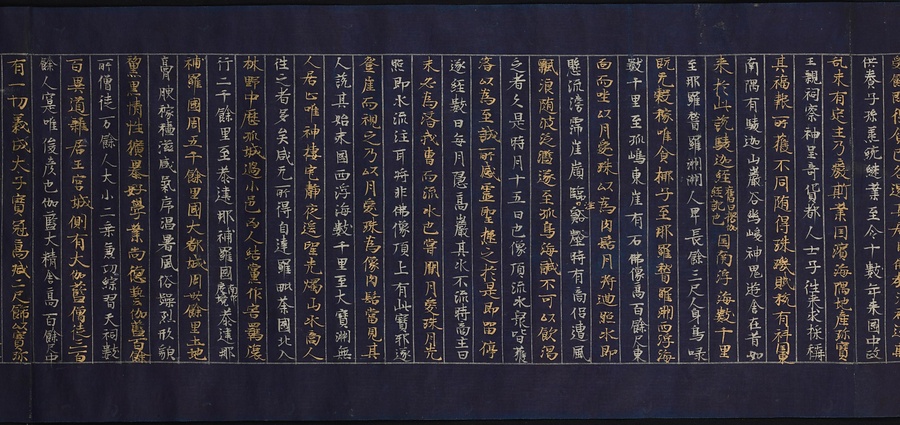 供養子孫承統継業至今十數年来國中政
乱未有定主乃廢斯業國濱海隅地産珍寶
王親祠祭神呈奇貨都人士子往来求採稱
其福報所獲不同随得珠璣賦稅有科國東
南隅有𩨃迦山巖谷幽峻神鬼遊舎在昔如
来於此説𩨃迦経舊曰楞伽経訛也國南浮海數千里
至那羅稽羅洲洲人卑長餘三尺人身鳥喙
既无穀稼唯食椰子至那羅稽羅洲西浮海
數千里至孤嶋東崖有石佛像高百餘尺東
面而坐以月愛珠以為肉髻月将迴照水即
懸流滂霈崖嶺臨注谿壑時有商侶遭風
飄浪随波泛濫遂至孤島海鹹不可以飲渇
乏者久之是時月十五日也像頂流水衆皆獲
済以為至誠所感靈聖拯之於是即留停
遂経數日毎月隠高巖其水不流時商主曰
未必為済我曹而流水也嘗聞月愛珠月光
照即水流注耳将非佛像頂上有此寶耶遂
登崖而視之乃以月愛珠為像肉髻當見其
人説其始末國西浮海數千里至大寶洲無
人居止唯神棲宅静夜遙望光燭山水商人
往之者多矣咸无所得自達羅毗荼國北入
林野中歴孤城過小邑凶人結黨作害羈旅
行二千餘里至恭達那補羅國南印度境恭達那
補羅國周五千餘里國大都城周卅餘里土地
膏腴稼穡滋盛氣序温暑風俗躁烈形貌
黧黒情性獷暴好學業尚徳藝伽藍百餘
所僧徒万餘人大小二乗兼功綜習天祠數
百異道雜居王宮城側有大伽藍僧徒三百
餘人寔唯俊彦也伽藍大精舎高百餘尺中
有一切義成太子寶冠高減二尺飾寶珎